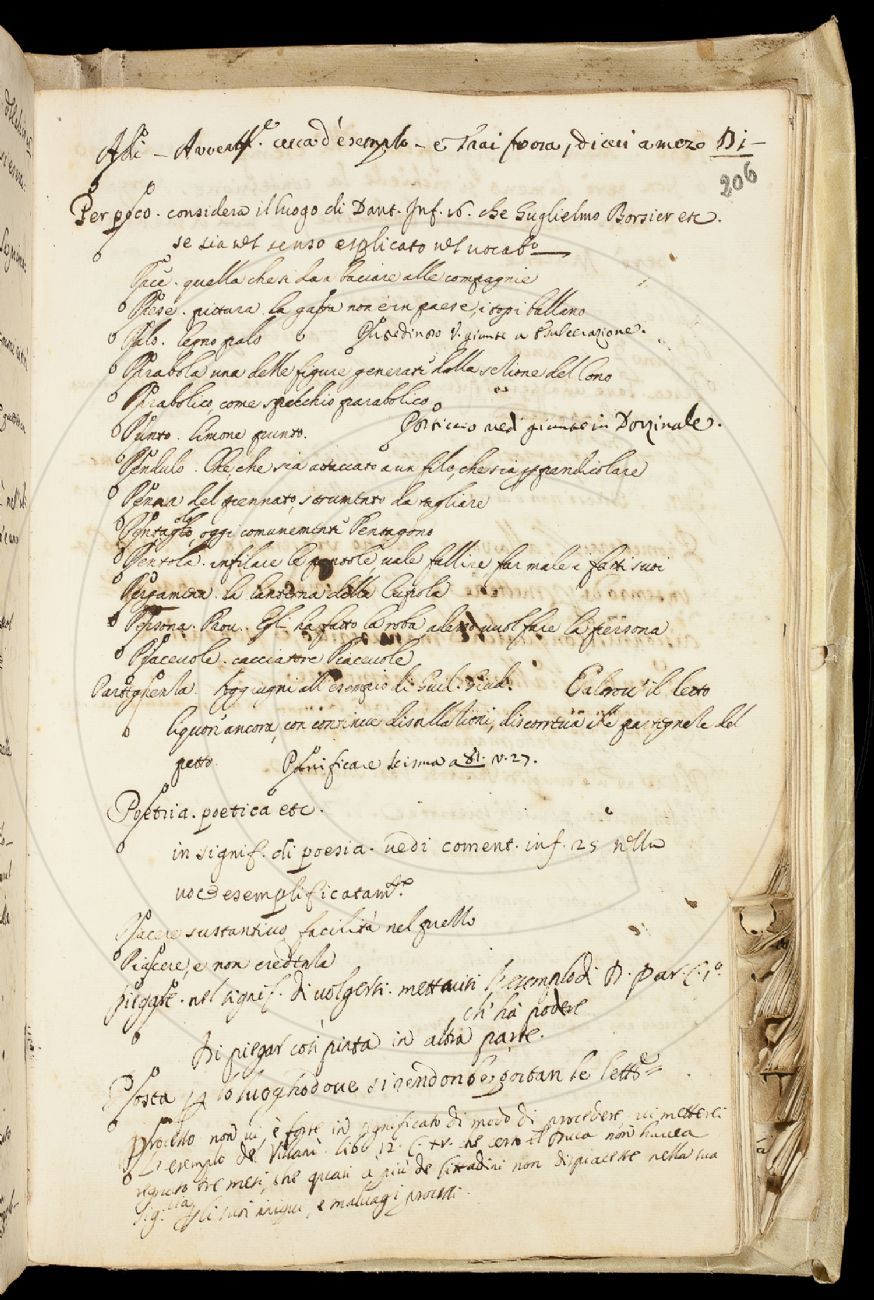 Avvert. cerca d'esempio – e trai fuora, dicesi a mezo Di –
206
Per poco. considera il luogo di Dant. Inf. 16. che Guglielmo Borsier etc.
se sia nel senso esplicato nel vocab.o
Pace. quella che si da a baciare alle compagnie
Paese. pittura. la gatta non è in paese, i topi ballano
Palo. legno palo
v. giunte a
Parabola una delle figure generate dalla sezione del Cono
Parabolico, come specchio parabolico
Punto. limone punto. vedi giunte in Dozzinale.
Pendulo. Che che sia attaccato a un filo, che sia perpendicolare
Penna del pennato, strumento da tagliare
oggi comunemente Pentagono
Pentola. infilare le pentole vale fallire far male i fatti suoi
Pergamena. la lanterna della Cupola
Persona. Prov. Egli ha fatto la roba a lui vuol fare la persona
Piacevole. cacciatore Piacevole
Aggiugni all'esempio di Guel. il letto
liquori ancora, con continue distillationi, del
petto. a 81. v. 27.
Poetria. poetica etc.
in signif. di poesia. vedi coment. inf. 25 nella
voce esemplificatam.e
Piacere sustantivo, facilità nel
Piacere, e non credenla
Piegare. nel signif. di volgersi. mettavisi l'esempio di D. Par. C. 1.o
ch' ha podere
Di piegar così pinta in altra parte.
Posta p lo luogho dove si rendono e portan le lett.e
Processo non vi è forse in significato di modo di procedere, vi metterei
l'esempio de Villani. libr. 12. C. ne certo il Duca non havea
regnato tre mesi, che quasi a più de Cittadini non dispiacesse nella sua
sig.ria p li suoi iniqui, e malvagi processi.